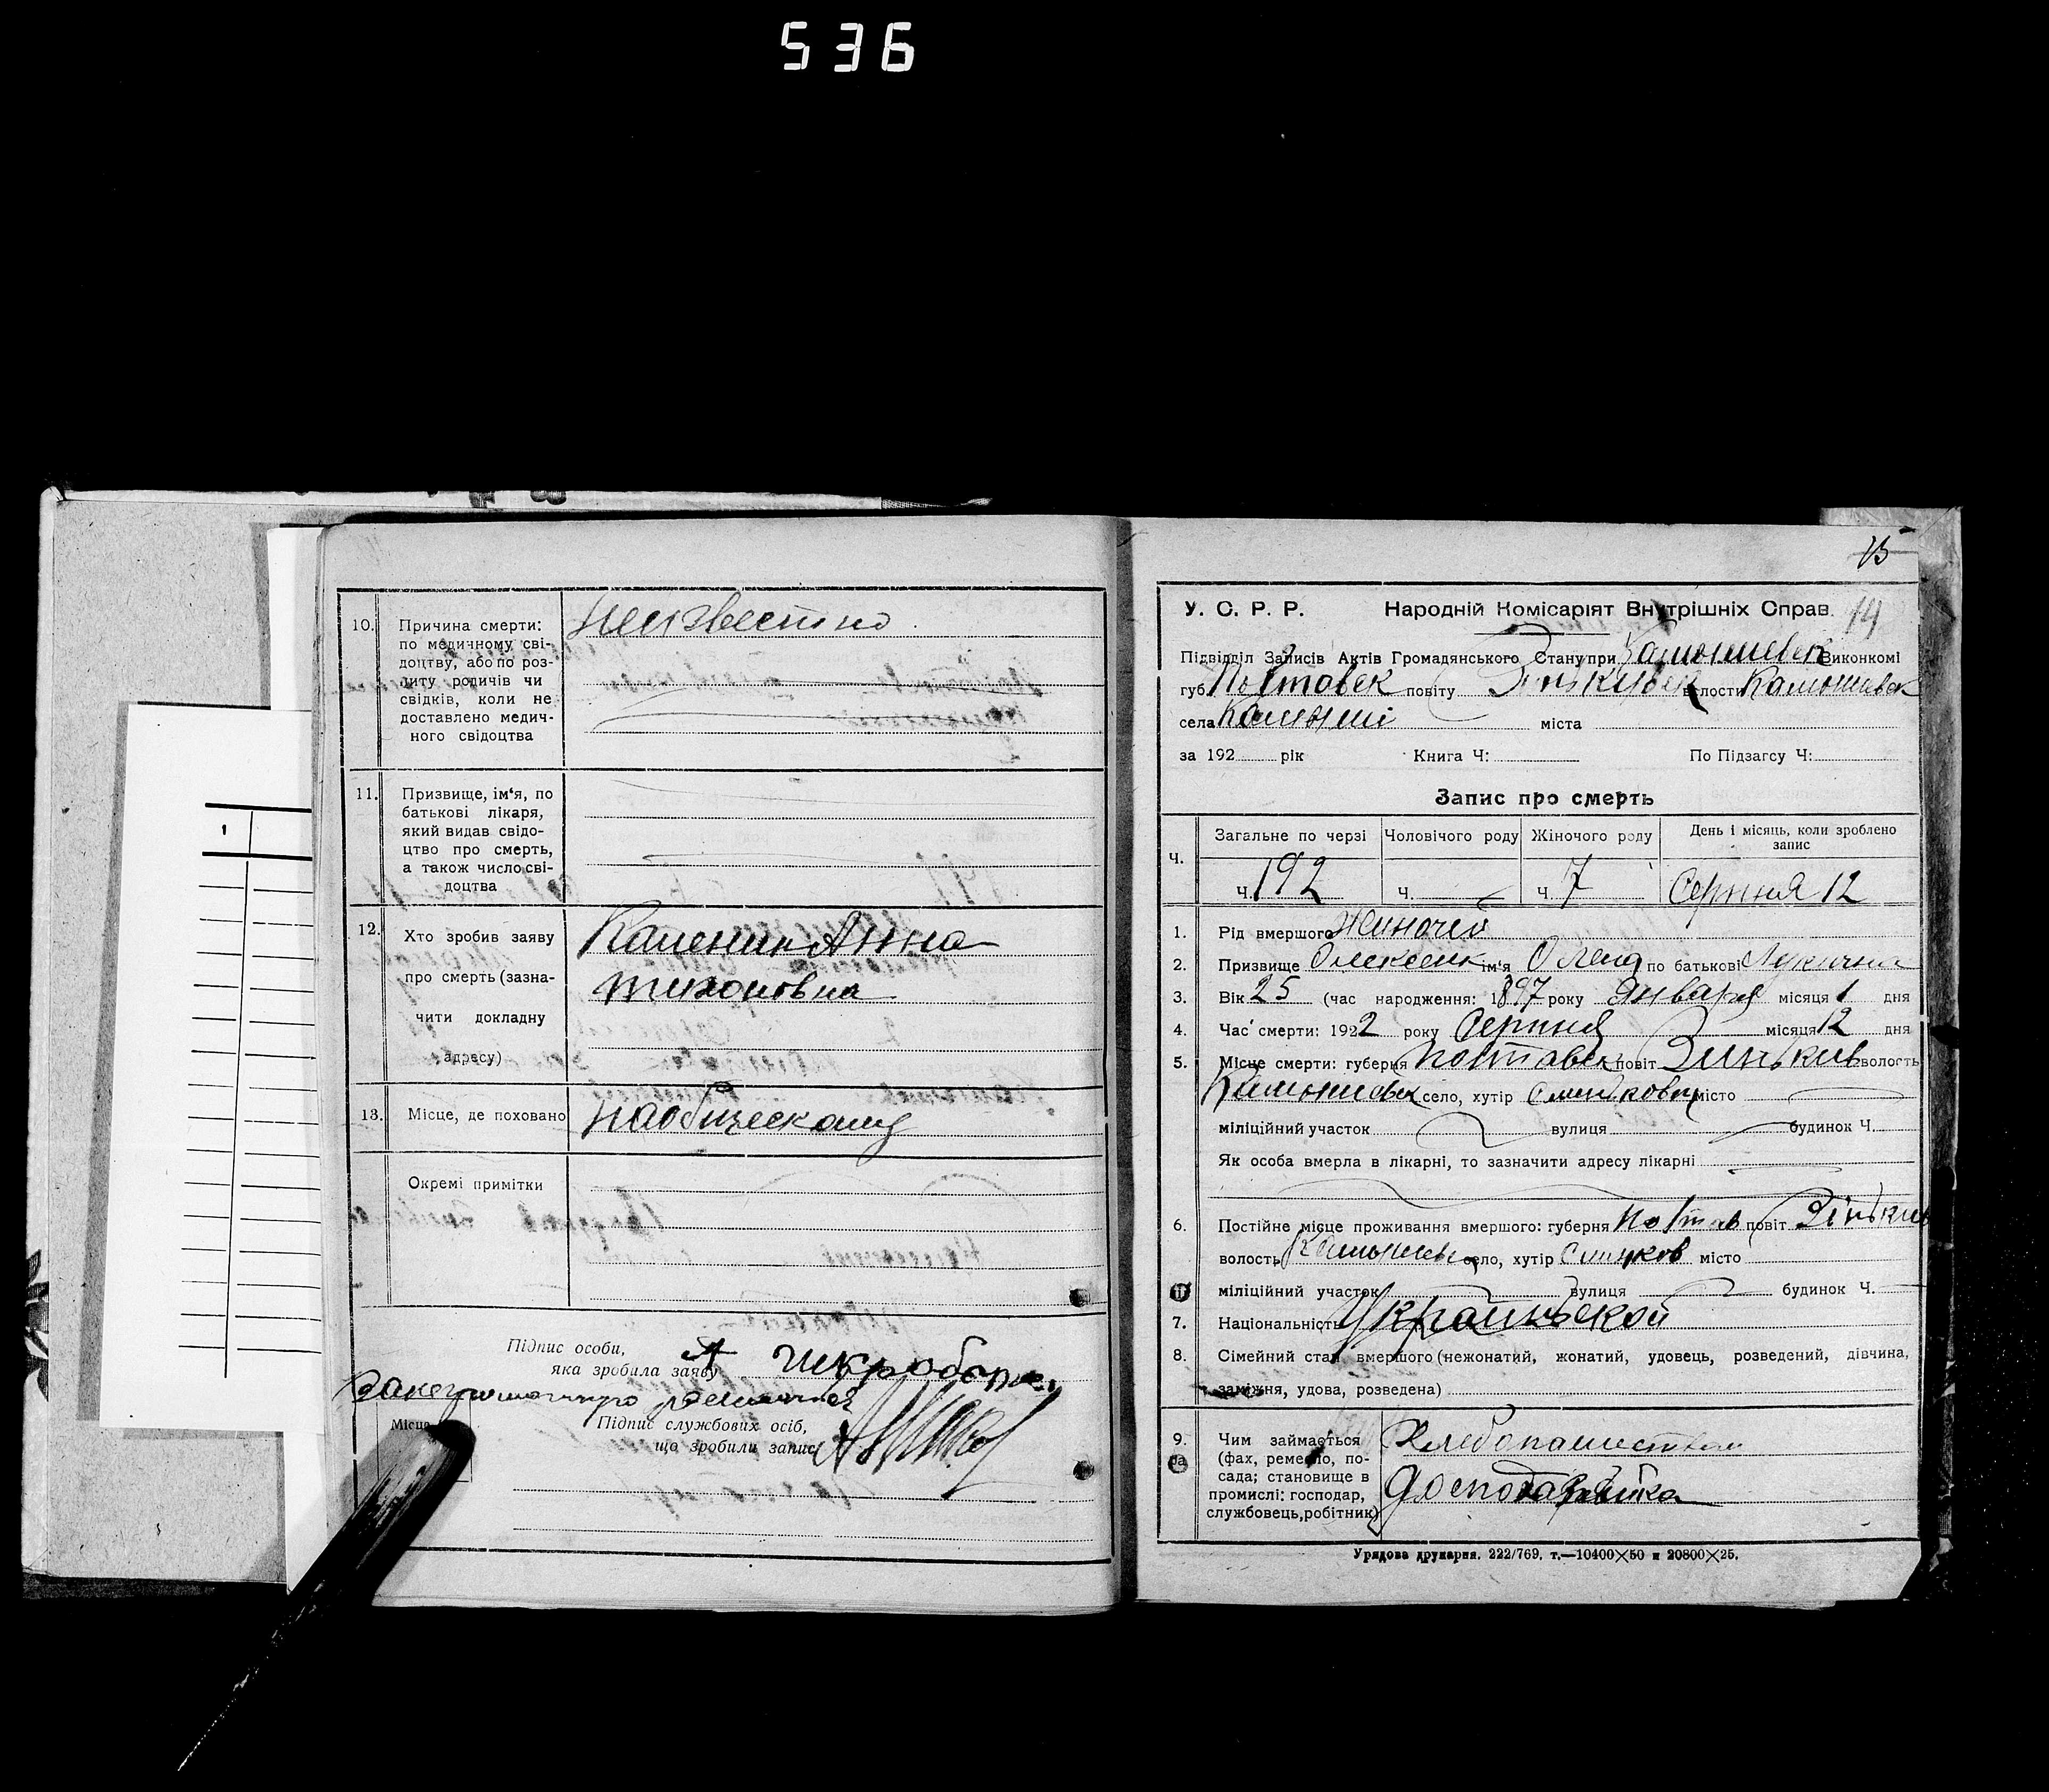 536
10. Причина смерти: Неизвестно.
по медичному сві-
доцтву, або по роз-
питу родичів чи
свідків, коли не
доставлено медич-
ного свідоцтва
11. Призвище, ім'я, по
батькові лікаря,
який видав свідо-
цтво про смерть,
а також число сві-
доцтва
12. Хто зробив заяву Каленик Анна
про смерть (зазна- Тихоновна
чити докладну
адресу)
13. Місце, де поховано
Окремі примітки
Підпис особи,
яка зробила заяву
Місце
Підпис службових осіб,
що зробили запис
1
15
14
У. С. Р. Р. Народній Комісаріят Внутрішніх Справ.
Підвідділ Записів Актів Громадянського Стану при Камышевск Виконкомі
губ. Полтавск повіту волости Камышевск
села Камыши міста
за 192 рік Книга Ч: По Підзагсу Ч:
Запис про смерть
Ч. Загальне по черзі Чоловічого роду Жіночого роду День і місяць, коли зроблено
запис
Ч. 192 Ч. Ч. 7 Серпня 12
1. Рід вмершого Жиночей
2. Призвище Олексенк ім'я Олена по батькові Лукична
3. Вік 25 (час народження: 1897 року Января місяця 1 дня
4. Час смерти: 1922 року Серпня місяця 12 дня
5. Місце смерти: губерня Полтавск повіт Зиньков волость
Камышевск село, хутір місто
міліційний участок вулиця будинок Ч.
Як особа вмерла в лікарні, то зазначити адресу лікарні
6. Постійне місце проживання вмершого: губерня Полтав повіт Зіньков
волость село, хутір місто
міліційний участок вулиця будинок Ч.
7. Національність Украиньской
8. Сімейний стан вмершого (нежонатий, жонатий, удовець, розведений, дівчина,
заміжня, удова, розведена)
9. Чим займається Хлебопашеством
(фах, ремесло, по-
сада; становище в
промислі: господар,
службовець, робітник)
Урядова друкарня. 222/769. т.—10400×50 и 20800×25.